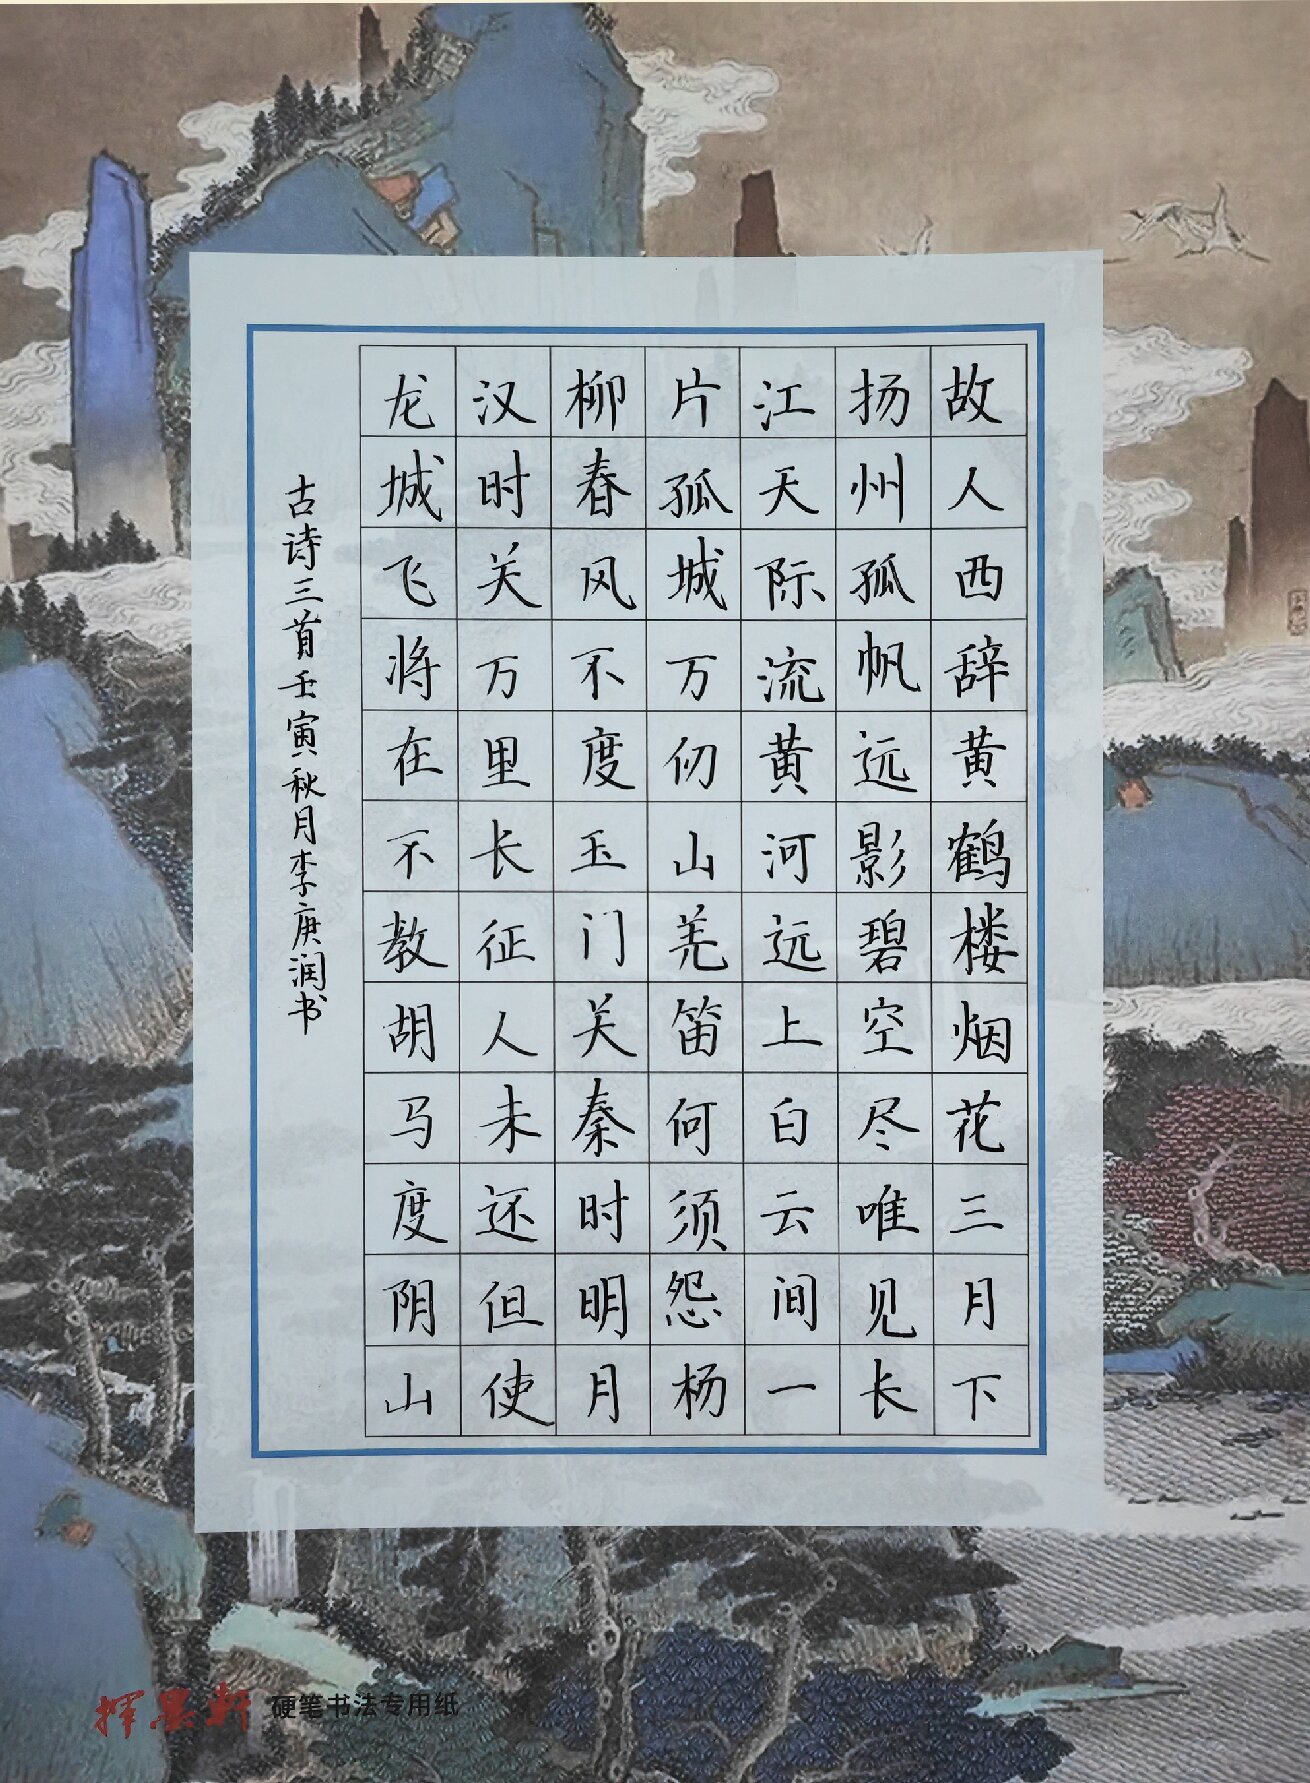 故人西辞黄鹤楼烟花三月下
扬州孤帆远影碧空尽唯见长
江天际流黄河远上白云间一
片孤城万仞山羌笛何须怨杨
柳春风不度玉门关秦时明月
汉时关万里长征人未还但使
龙城飞将在不教胡马度阴山
古诗三首壬寅秋月李庚润书
挥墨轩 硬笔书法专用纸